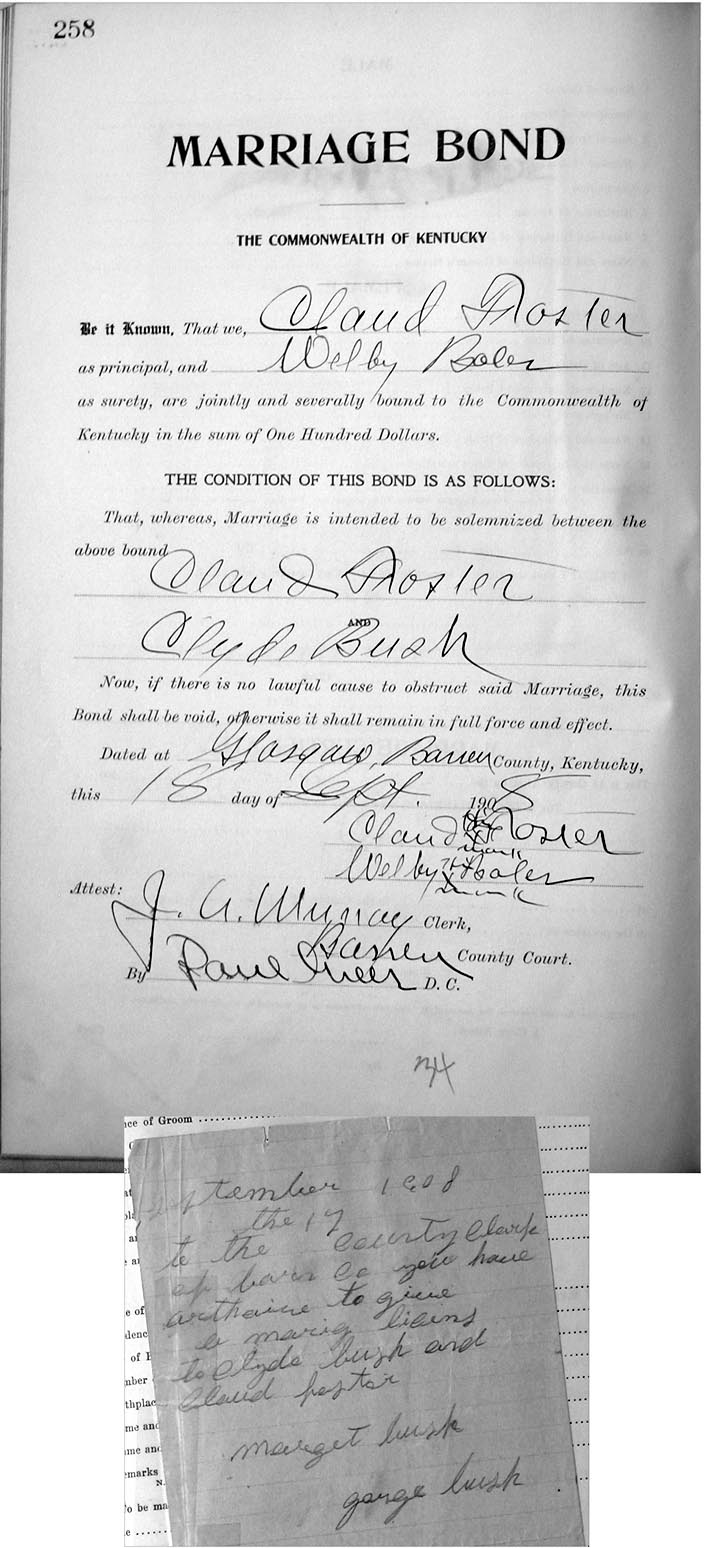 258
MARRIAGE BOND
THE COMMONWEALTH OF KENTUCKY
Be it Known, That we, Claud Froster
as principal, and Welby Boler
as surety, are jointly and severally bound to the Commonwealth of
Kentucky in the sum of One Hundred Dollars.
THE CONDITION OF THIS BOND IS AS FOLLOWS:
That, whereas, Marriage is intended to be solemnized between the
above bound
Claud Froster
AND
Clyde Bush
Now, if there is no lawful cause to obstruct said Marriage, this
Bond shall be void, otherwise it shall remain in full force and effect.
Dated at Glasgow, Barren County, Kentucky,
this 18 day of Sept. 1908
his
Claud X Froster
mark
his
Welby X Boler
mark
Attest:
J. A. Murray Clerk,
Barren County Court.
By Paul Greer D. C.
34
nce of Groom
September 1908
the 17
to the County Clark
of barn Co you have
arthaire to give
a marig licins
to Clyde bush and
Claud fostar
marget bush
gorge bush
of B
mber
thplac
me and
me and
emarks
N.
o be ma